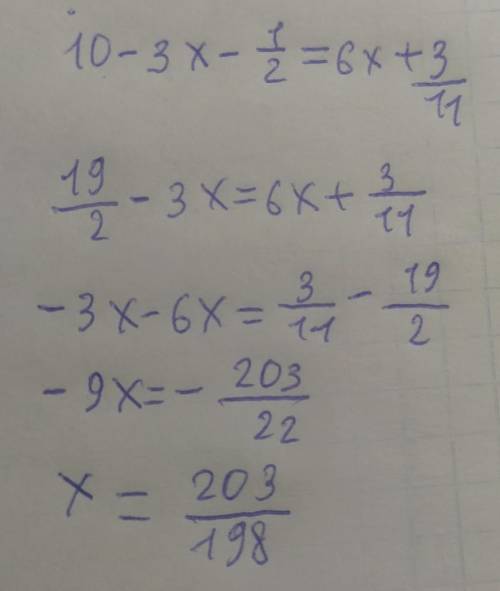 10 - 3x - 1/2 = 6x + 3/11
19/2 - 3x = 6x + 3/11
-3x - 6x = 3/11 - 19/2
-9x = - 203/22
x = 203/198